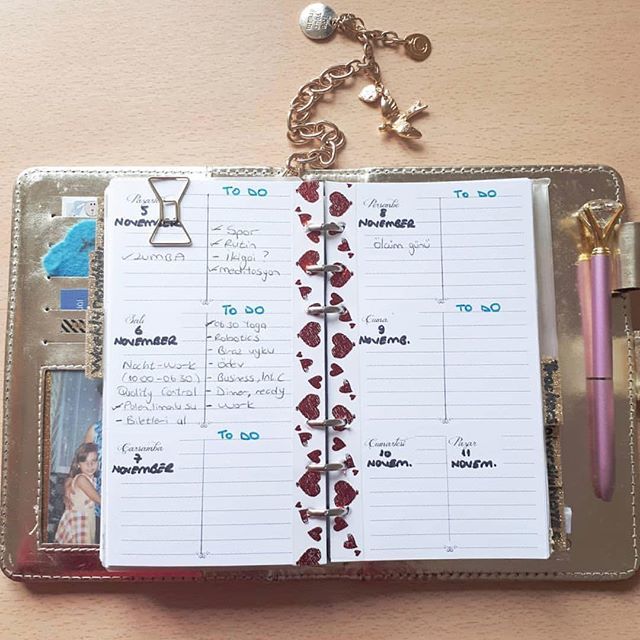 Pazartesi
5
NOVEMBER
✓ ZUMBA
TO DO
✓ Spor
✓ Rutin
- Ikigai ?
✓ meditasyon
Salı
6
NOVEMBER
Nacht-Work
Quality Control
- Biletleri al
✓ 06:30 Yoga
✓ Robotics
- Biraz uyku
- Ödev
- Dinner, ready
- Work
Çarşamba
7
NOVEMBER
TO DO
Perşembe
8
NOVEMBER
Ölçüm günü
TO DO
Cuma
9
NOVEMB.
TO DO
Cumartesi
10
NOVEM.
Pazar
11
NOVEM.